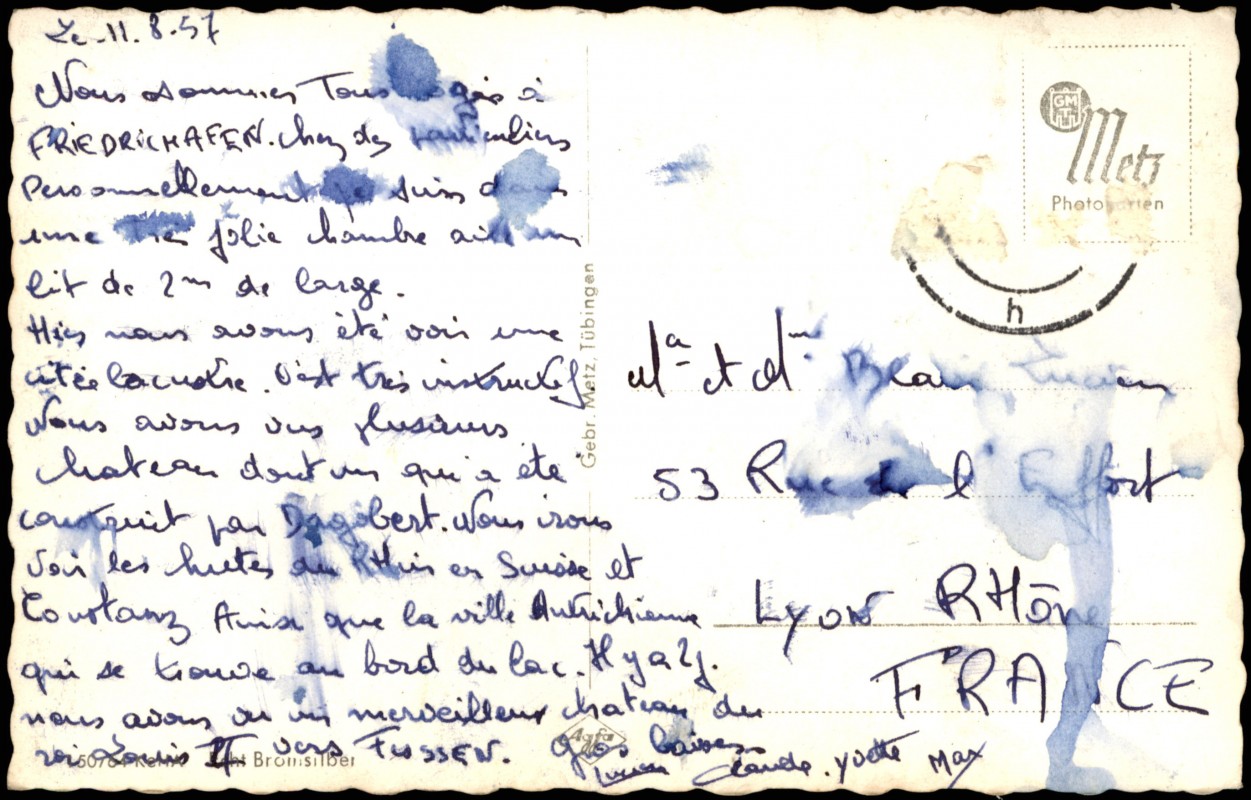 Le 11.8.57
Nous sommes Tous logés à
FRIEDRICHAFEN. chez des particuliers
Personnellement je suis dans
une très jolie chambre avec un
lit de 2m de large.
Hier nous avons été voir une
citée lacustre. C'est très instructif
Nous avons vus plusieurs
chateau dont un qui a été
construit par Dagobert. Nous irons
voir les chutes du RHin en Suisse et
Constanz Ainsi que la ville Autrichienne
qui se trouve au bord du lac. Il y a 2j.
nous avons vu un merveilleux chateau du
roi Louis II vers FUSSEN. Gros baisers
Lucien Claude. Yvette Max
Gebr. Metz, Tübingen
Agfa
Echt Bromsilber
GMT
Metz
Photokarten
h
Ma et Mm Blain Lucien
53 Rue de l'Effort
Lyon RHône
FRANCE